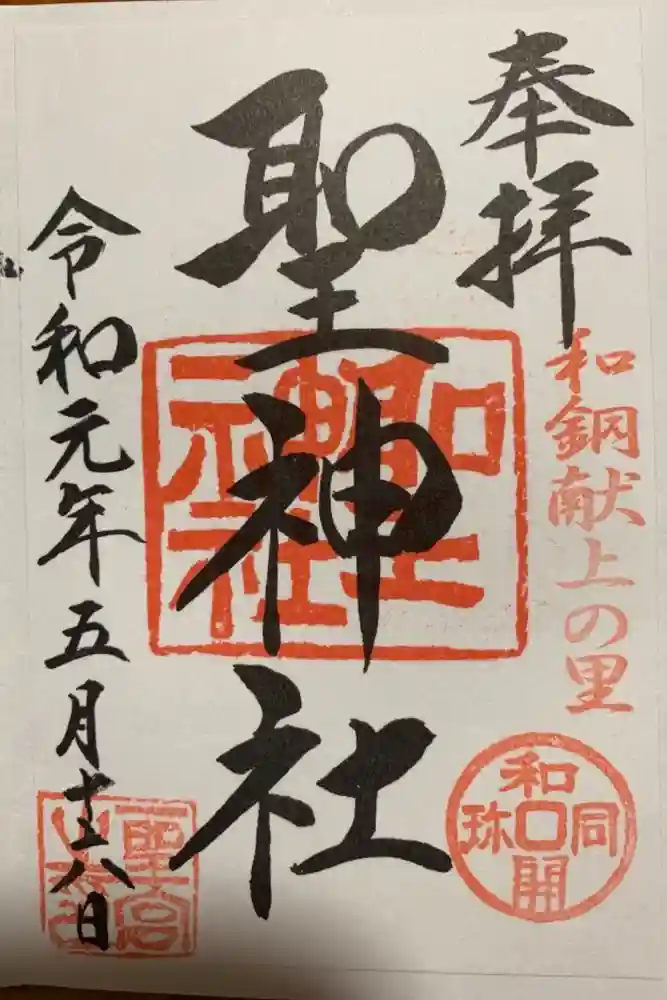 奉拝
和銅献上の里
和同開珎
聖神社
聖神社
令和元年五月十八日